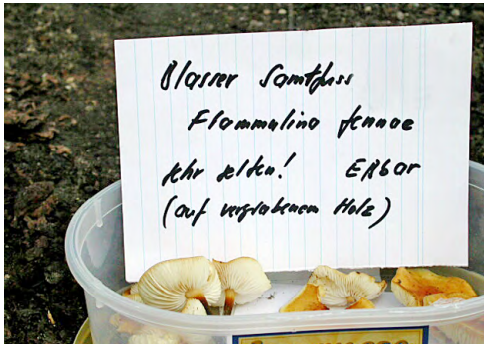 Blasser Samtfuss
Flammulina fennae
Sehr selten! Eßbar
(auf vergrabenem Holz)